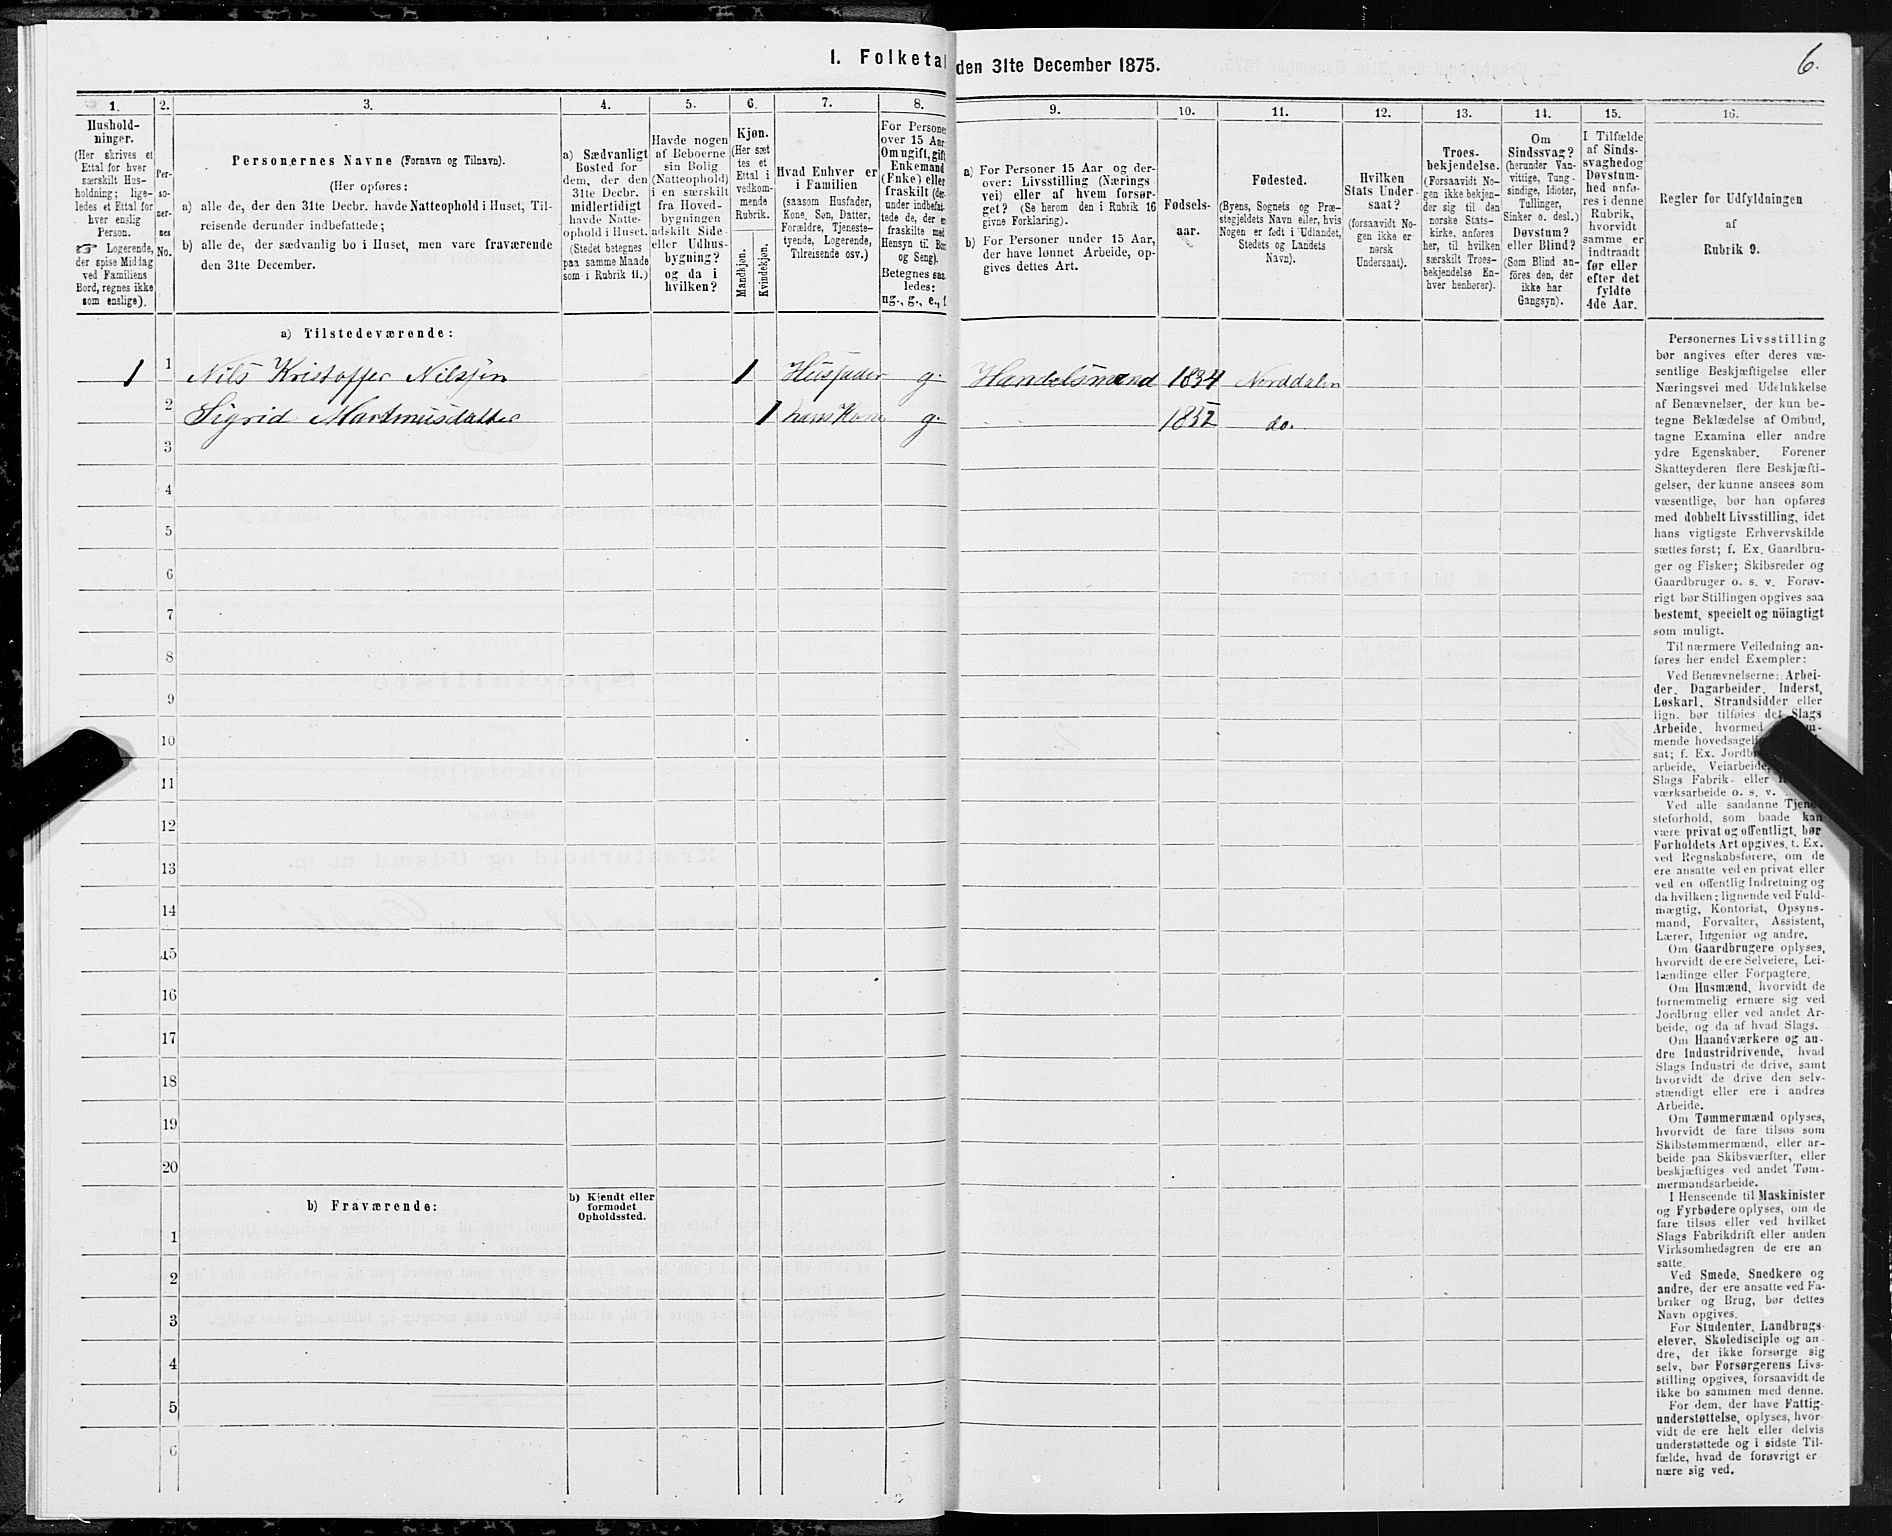 I. Folketal den 31te December 1875.
6.
1. 2. 3. 4. 5. 6. 7. 8. 9. 10. 11. 12. 13. 14. 15. 16.
Hushold-
ninger.
(Her skrives et
Ettal for hver
særskilt Hus-
holdning; lige-
ledes et Ettal for
hver enslig
Person.
☞ Logerende,
der spise Middag
ved Familiens
Bord, regnes ikke
som enslige).
Per-
so-
ner-
nes
No.
Personernes Navne (Fornavn og Tilnavn).
(Her opføres:
a) alle de, der den 31te Decbr. havde Natteophold i Huset, Til-
reisende derunder indbefattede;
b) alle de, der sædvanlig bo i Huset, men vare fraværende
den 31te December.
a) Sædvanligt
Bosted for
dem, der den
31te Decbr.
midlertidigt
havde Natte-
ophold i Huset.
(Stedet betegnes
paa samme Maade
som i Rubrik 11.)
Havde nogen
af Beboerne
sin Bolig
(Natteophold)
i en særskilt
fra Hoved-
bygningen
adskilt Side-
eller Udhus-
bygning?
og da i
hvilken?
Kjøn.
(Her sæt
tes et
Ettal i
vedkom-
mende
Rubrik.
Mandkjøn.
Kvindekjøn.
Hvad Enhver er
i Familien
(saasom Husfader,
Kone, Søn, Datter,
Forældre, Tjeneste-
tyende, Logerende,
Tilreisende osv.)
For Persone
over 15 Aar
Om ugift, gift
Enkemand
(Enke) eller
fraskilt (der-
under indbefat-
tede de, der er
fraskilte med
Hensyn til Bor
og Seng).
Betegnes saa-
ledes:
ug., g., e., f
a) For Personer 15 Aar og der-
over: Livsstilling (Nærings
vei) eller af hvem forsør-
get? (Se herom den i Rubrik 16
givne Forklaring).
b) For Personer under 15 Aar,
der have lønnet Arbeide, op-
gives dettes Art.
Fødsels-
aar.
Fødested.
(Byens, Sognets og Præ-
stegjeldets Navn eller, hvis
Nogen er født i Udlandet,
Stedets og Landets
Navn).
Hvilken
Stats Under-
saat?
(forsaavidt No-
gen ikke er
norsk
Undersaat).
Troes-
bekjendelse.
(Forsaavidt No-
gen ikke bekjen-
der sig til den
norske Stats-
kirke, anføres
her, til hvilken
særskilt Troes-
bekjendelse En-
hver henhører).
Om
Sindssvag?
(herunder Van-
vittige, Tung-
sindige, Idioter,
Tullinger,
Sinker o. desl.)
Døvstum?
eller Blind?
(Som Blind an-
føres den, der
ikke har
Gangsyn).
I Tilfælde
af Sinds-
svaghedog
Døvstum-
hed anfø-
res i denne
Rubrik,
hvorvidt
samme er
indtraadt
før eller
efter det
fyldte
4de Aar.
Regler for Udfyldningen
af
Rubrik 9.
a) Tilstedeværende:
1 1 Nils Kristoffer Nilssen 1 Husfader g. Handelsmand 1834 Norddalen
2 Sigrid Martinusdatter 1 hans Kone g. 1832 do.
3
4
5
6
7
8
9
10
11
12
13
14
15
16
17
18
19
20
b) Fraværende:
b) Kjendt eller
formodet
Opholdssted.
1
2
3
4
5
6
Personernes Livsstilling
bør angives efter deres væ-
sentlige Beskjæftigelse eller
Næringsvei med Udelukkelse
af Benævnelser, der kun be-
tegne Beklædelse af Ombud,
tagne Examina eller andre
ydre Egenskaber. Forener
Skatteyderen flere Beskjæfti-
gelser, der kunne ansees som
væsentlige, bør han opføres
med dobbelt Livsstilling, idet
hans vigtigste Erhvervskilde
sættes først; f. Ex. Gaardbru-
ger og Fisker; Skibsreder og
Gaardbruger o. s. v. Forøv-
rigt bør Stillingen opgives saa
bestemt, specielt og nöiagtigt
som muligt.
Til nærmere Veiledning an-
føres her endel Exempler:
Ved Benævnelserne: Arbei-
der, Dagarbeider, Inderst,
Løskarl, Strandsidder eller
lign. bør tilføies det Slags
Arbeide, hvormed
mende hovedsagelig
sat; f. Ex. Jordbr
arbeide, Veiarbeide,
Slags Fabrik- eller
værksarbeide o. s. v.
Ved alle saadanne Tjene-
steforhold, som baade kan
være privat og offentligt, bør
Forholdets Art opgives, t. Ex.
ved Regnskabsførere, om de
ere ansatte ved en privat eller
ved en offentlig Indretning og
da hvilken; lignende ved Fuld-
mægtig, Kontorist, Opsyns-
mand, Forvalter, Assistent,
Lærer, Ingeniør og andre.
Om Gaardbrugere oplyses,
hvorvidt de ere Selveiere, Lei-
lændinge eller Forpagtere.
Om Husmænd, hvorvidt de
fornemmelig ernære sig ved
Jordbrug eller ved andet Ar-
beide, og da af hvad Slags.
Om Haandværkere og an-
dre Industridrivende, hvad
Slags Industri de drive, samt
hvorvidt de drive den selv-
stændigt eller ere i andres
Arbeide.
Om Tømmermænd oplyses,
hvorvidt de fare tilsøs som
Skibstømmermænd, eller ar-
beide paa Skibsværfter, eller
beskjæftiges ved andet Tøm-
mermandsarbeide.
I Henseende til Maskinister
og Fyrbødere oplyses, om de
fare tilsøs eller ved hvilket
Slags Fabrikdrift eller anden
Virksomhedsgren de ere an-
satte.
Ved Smede, Snedkere og
andre, der ere ansatte ved Fa-
briker og Brug, bør dettes
Navn opgives.
For Studenter, Landbrugs-
elever, Skoledisciple og an-
dre, der ikke forsørge sig
selv, bør Forsørgerens Livs-
stilling opgives, forsaavidt de
ikke bo sammen med denne.
For dem, der have Fattig-
understøttelse, oplyses, hvor-
vidt de ere helt eller delvis
understøttede og i sidste Til-
fælde, hvad de forøvrigt er-
nære sig ved.